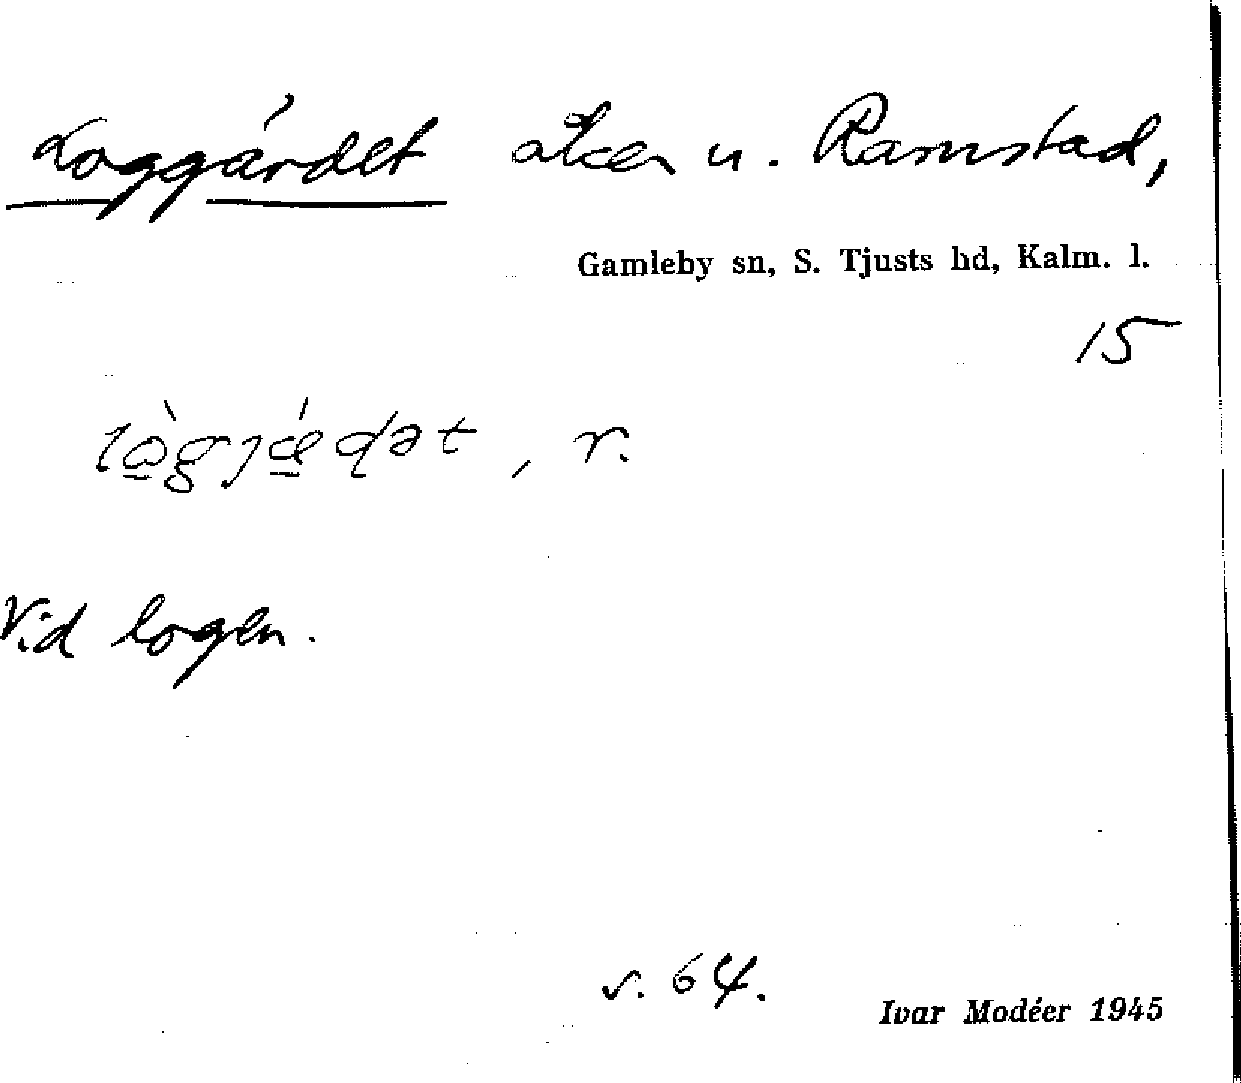 Loggärdet åker u. Ramstad,
Gamleby sn, S. Tjusts hd, Kalm. l.
15
, r.
Vid logen.
s. 64.
Ivar Modéer 1945